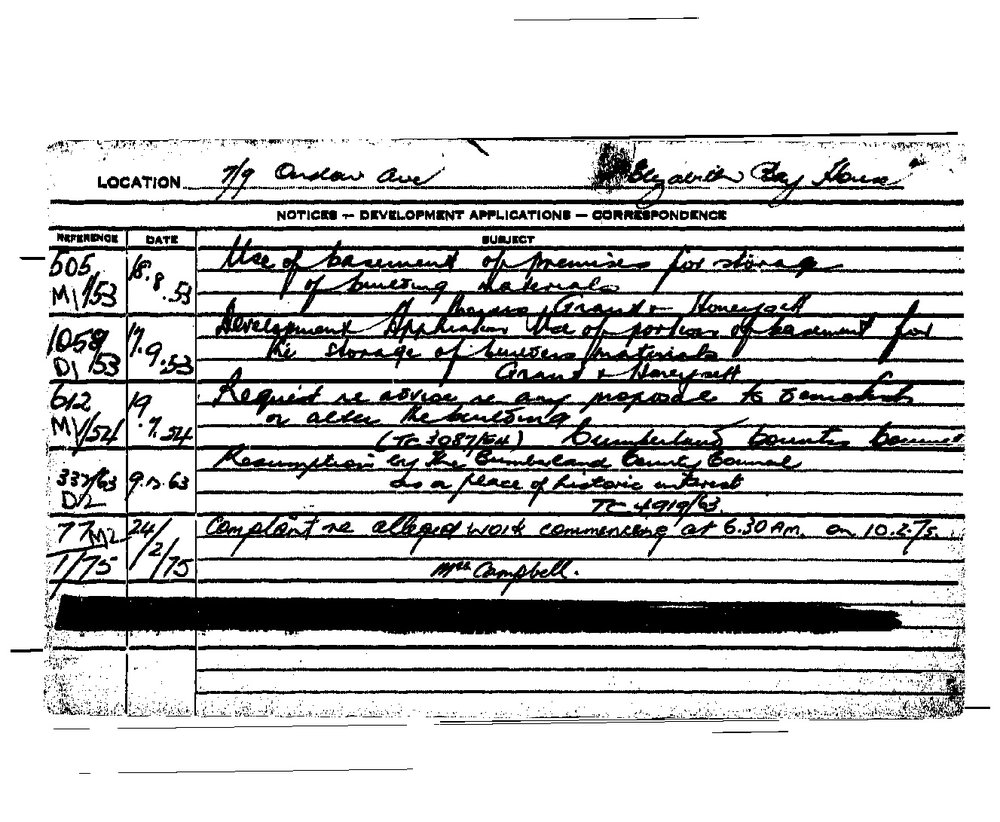 LOCATION 7/9 Onslow Ave "Elizabeth Bay House"
NOTICES — DEVELOPMENT APPLICATIONS — CORRESPONDENCE
REFERENCE DATE SUBJECT
505 18.8.53 Use of basement of premises for storage
M1/53 of building materials
Messrs Grant & Honeysett
1058 17.9.53 Development Application Use of portion of basement for
D1/53 the storage of builders materials
Grant & Honeysett
612 19.7.54 Request re advice re any proposal to demolish
M1/54 or alter the building
(TC 3087/54) Cumberland County Council
337/63 9.12.63 Resumption by the Cumberland County Council
D/2 as a place of historic interest
TC 4919/63.
77M2 24/2/75 Complaint re alleged work commencing at 6.30 AM. on 10.2.75.
1/75 Mrs Campbell.